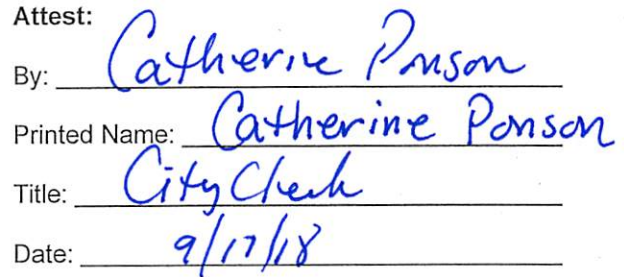 Attest:
By: Catherine Ponson
Printed Name: Catherine Ponson
Title: City Clerk
Date: 9/17/18